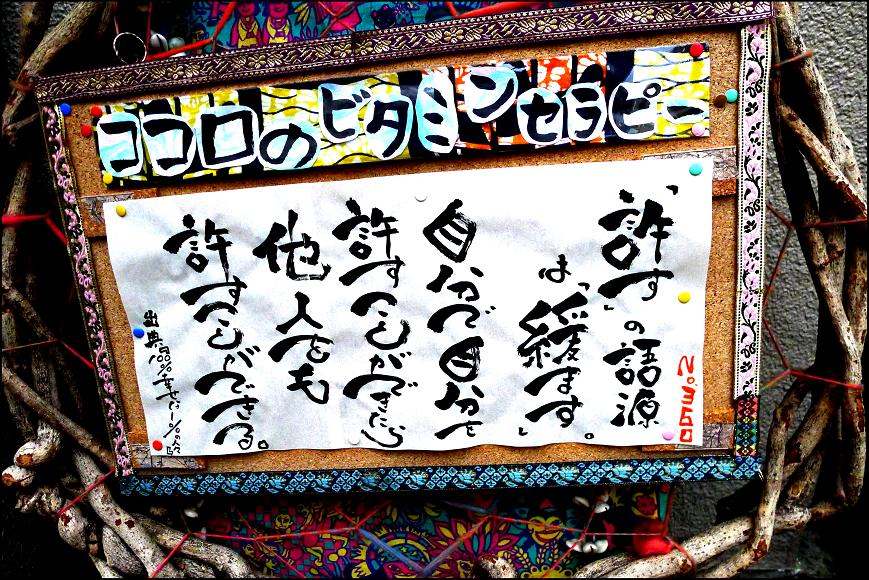 ココロのビタミンセラピー
「許す」の語源
は「緩ます」。
自分で自分を
許すことができたら
他人をも
許すことができる。
出典